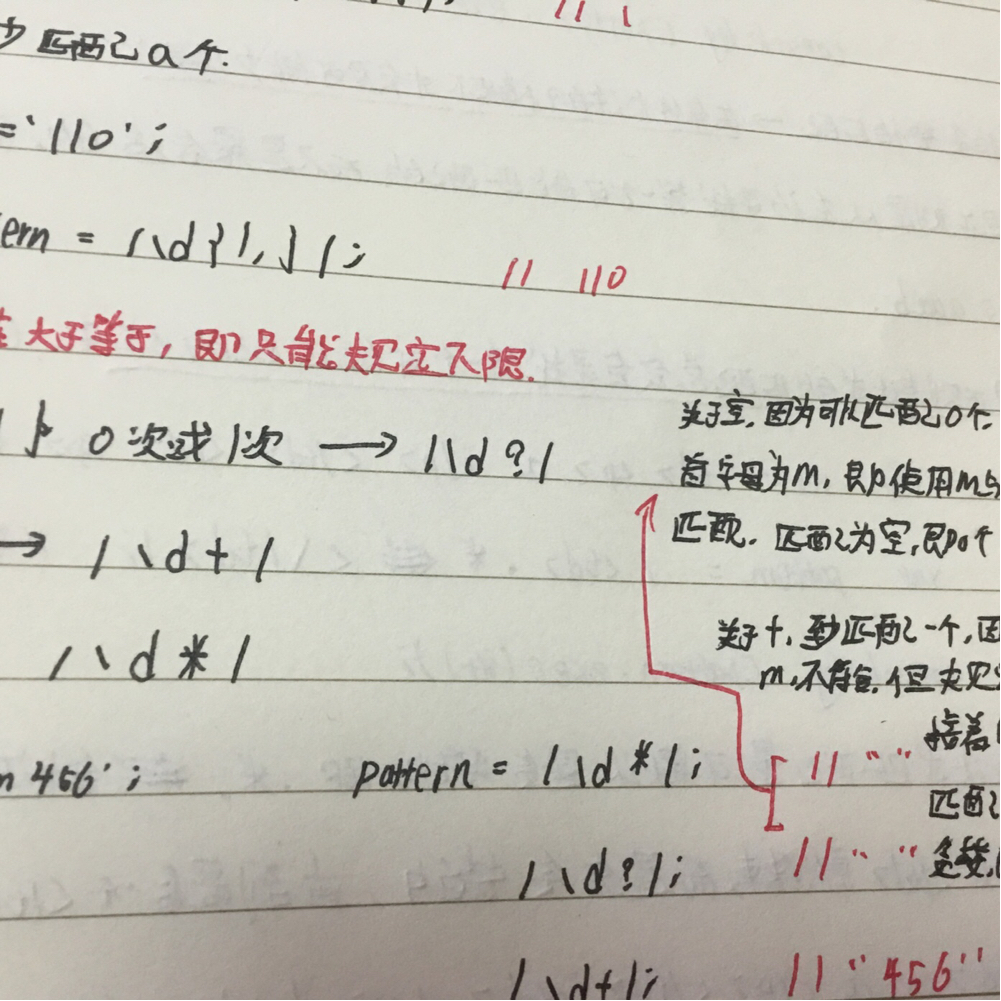 少匹配a个.
='110';
ern = /\d{1,}/; // 110
大于等于,即只能规定下限.
} 0次或1次 → /\d?/
关于空,因为可以匹配0个.
首字母为m,即使用m与
匹配.匹配为空,即0个
→ /\d+/
关于+,至少匹配一个,因
m,不符合,但规
/\d*/
接着
456'; pattern = /\d*/; // ""
匹配
/\d?/; // ""
/\d+/; // "456"